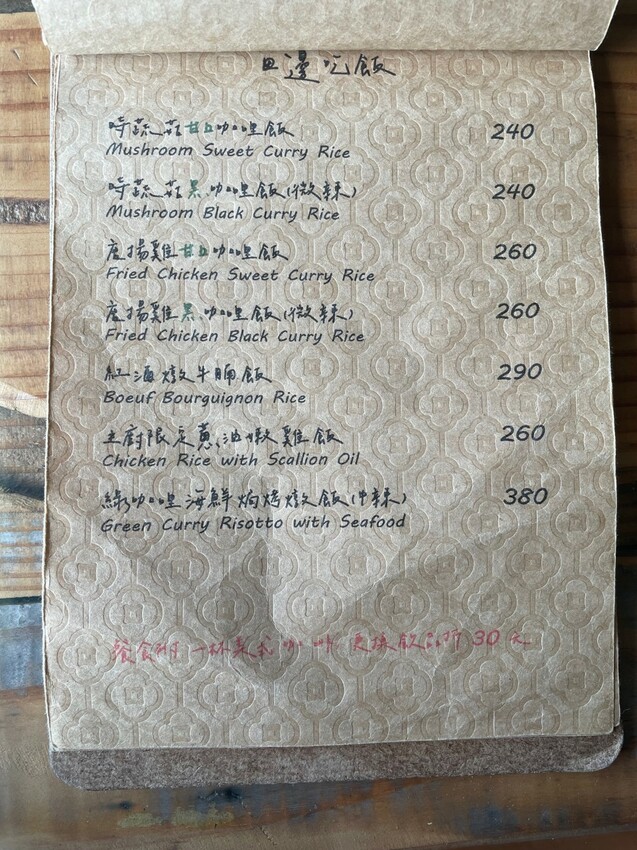 田邊吃飯
時蔬菇甘口咖哩飯 240
Mushroom Sweet Curry Rice
時蔬菇黑咖哩飯(微辣) 240
Mushroom Black Curry Rice
唐揚雞甘口咖哩飯 260
Fried Chicken Sweet Curry Rice
唐揚雞黑咖哩飯(微辣) 260
Fried Chicken Black Curry Rice
紅酒燉牛腩飯 290
Boeuf Bourguignon Rice
主廚限定蔥油嫩雞飯 260
Chicken Rice with Scallion Oil
綠咖哩海鮮焗烤燉飯(中辣) 380
Green Curry Risotto with Seafood
餐食附一杯美式咖啡 更換飲品折30元